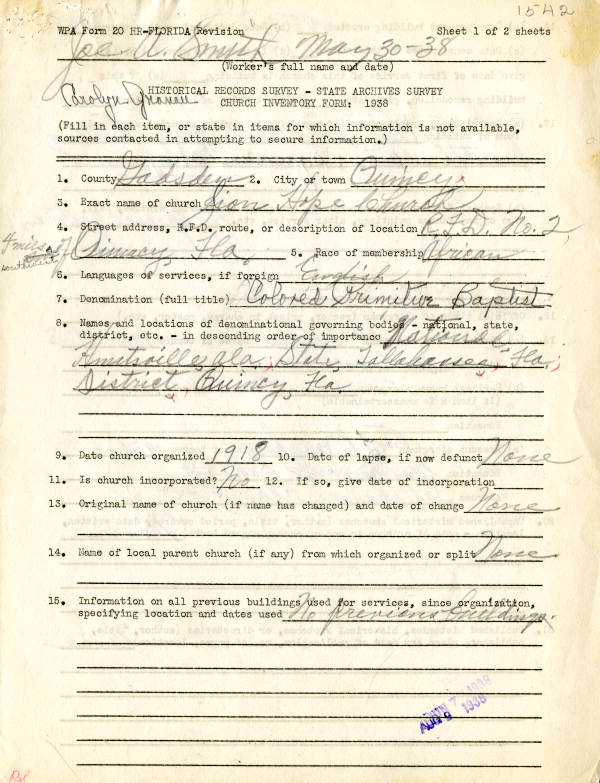 1542
WPA Form 20 HR-FLORIDA Revision Sheet 1 of 2 sheets
Joe A. Smith May 30-38
(Worker's full name and date)
HISTORICAL RECORDS SURVEY - STATE ARCHIVES SURVEY
Carolyn
CHURCH INVENTORY FORM: 1938
(Fill in each item, or state in items for which information is not available,
sources contacted in attempting to secure information.)
1. County Gadsden 2. City or town Quincy
3. Exact name of church Sion Hope Church
4. Street address, R.F.D. route, or description of location R.F.D. No. 2
4 miles southwest of Quincy, Fla. 5. Race of membership African
6. Languages of services, if foreign English
7. Denomination (full title) Colored Primitive Baptist
8. Names and locations of denominational governing bodies - national, state,
district, etc. - in descending order of importance National
Huntsville, Ala; State, Tallahassee, Fla.;
District, Quincy, Fla.
9. Date church organized 1918 10. Date of lapse, if now defunct None
11. Is church incorporated? No 12. If so, give date of incorporation
13. Original name of church (if name has changed) and date of change None
14. Name of local parent church (if any) from which organized or split None
15. Information on all previous buildings used for services, since organization,
specifying location and dates used No previous buildings.
JUN 7 1938
AUG 9 1938